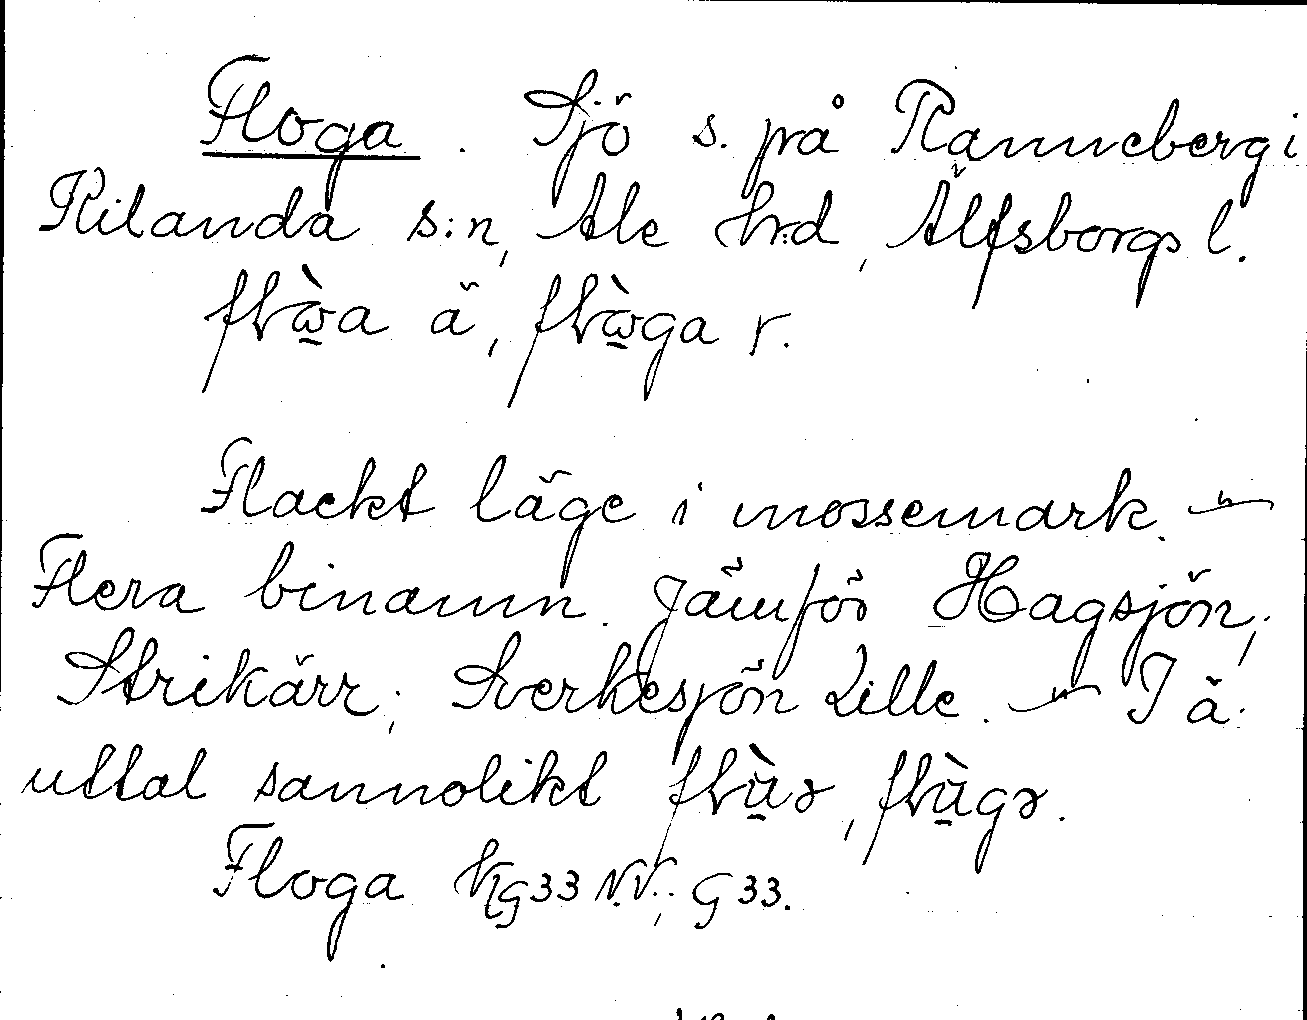 Floga. Sjö s. på Ranneberg i
Rilanda s:n, Ale hrd, Älfsborgs l.
flɷ̀a ä, flɷ̀ga r.
Flackt läge i mossemark. –
Flera binamn. Jämför Hagsjön;
Strikärr; Sverkesjön Lille. – I ä.
uttal sannolikt flùə, flùgə.
Floga Kg 33 N.V.; G 33.